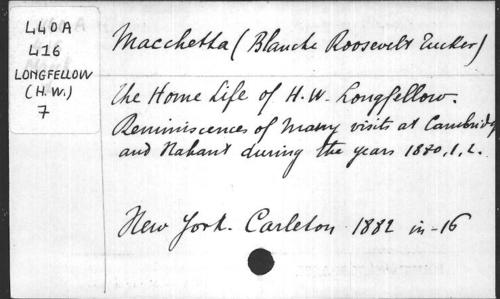 L40A
L16
LONGFELLOW
(H.W.)
7
Macchetta (Blanche Roosevelt Tucker)
The Home Life of H.W. Longfellow.
Reminiscences of many visits at Cambridge
and Nahant during the years 1880, 1, 2.
New York. Carleton 1882 in-16